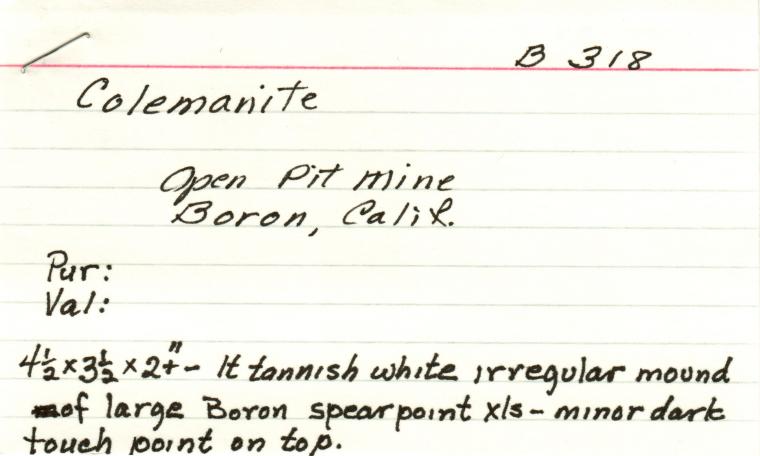 B 318
Colemanite
Open Pit Mine
Boron, Calif.
Pur:
Val:
4½ x 3½ x 2+" - lt tannish white irregular mound
of large Boron spearpoint xls - minor dark
touch point on top.